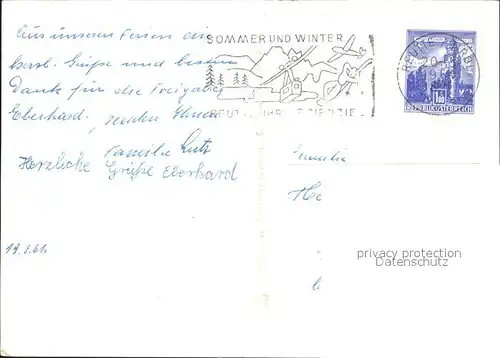 Aus unseren Ferien die
herzl. Grüße und besten
Dank für die Freigabe
Eberhard, senden Ihnen
Familie Lutz
Herzliche Grüße Eberhard
19.3.61.
SOMMER UND WINTER
REUTTE
1.50
REPUBLIK ÖSTERREICH
Familie
He
privacy protection
Datenschutz